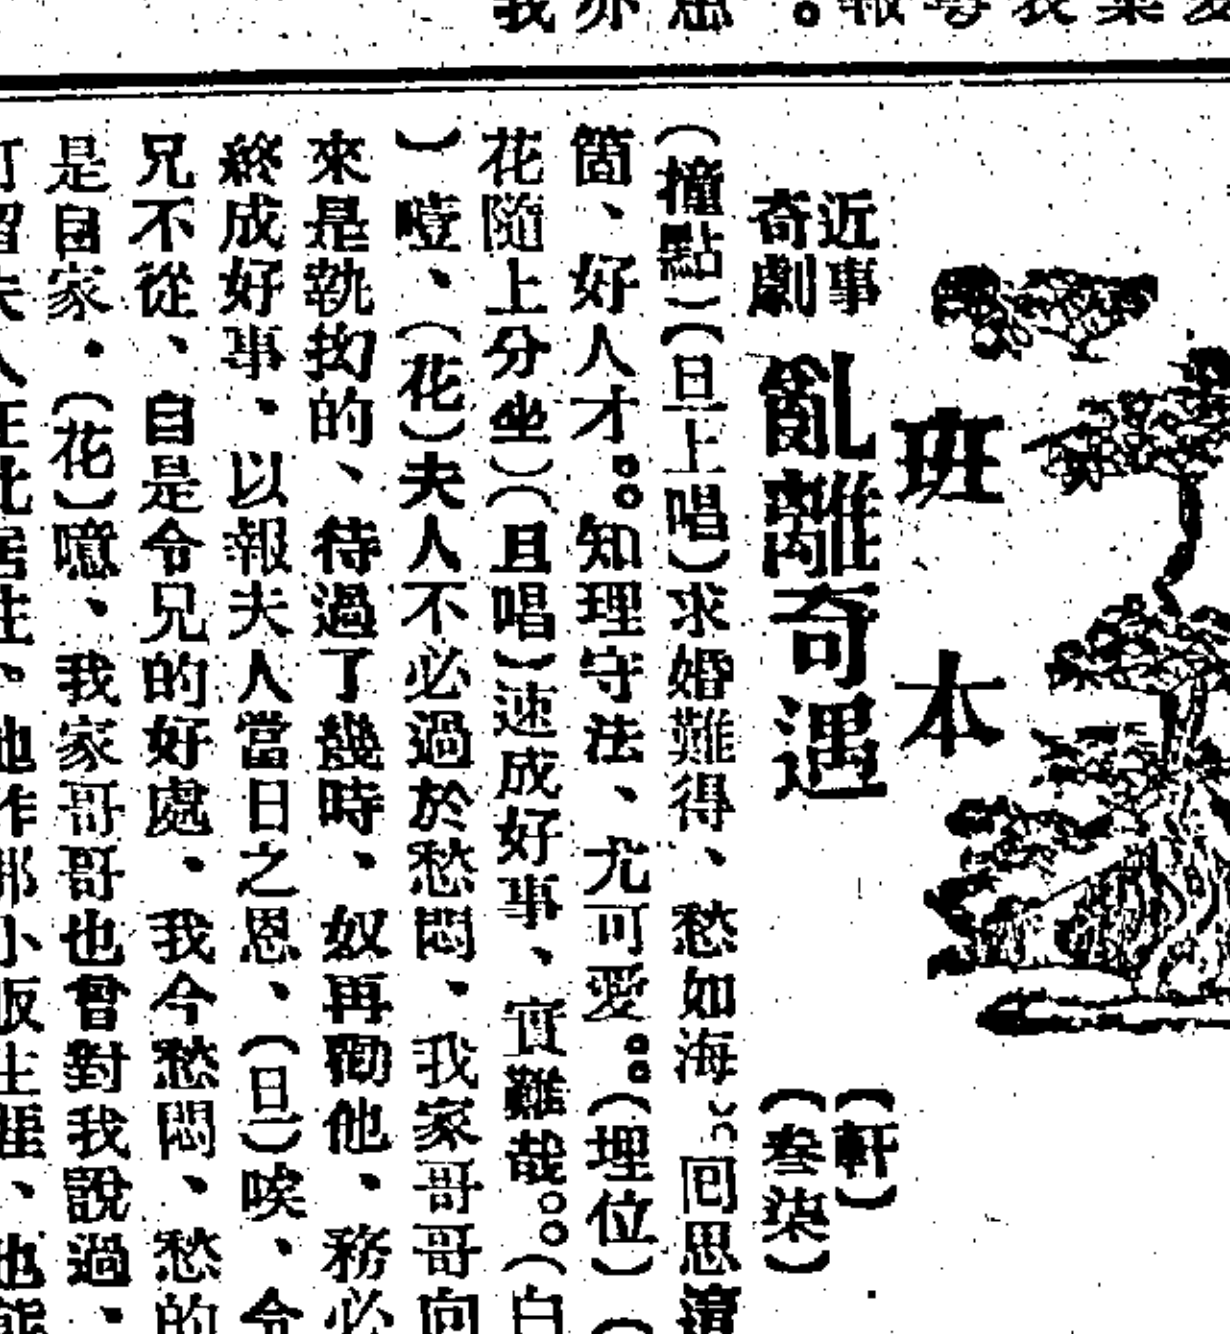 班本
近事
奇劇
亂離奇遇
(軒)
(叁柒)
(撞點)(旦上唱)求婚難得、愁如海。。囘思這
箇、好人才。。知理守法、尤可愛。。(埋位)(
花隨上分坐)(旦唱)速成好事、實難哉。。(白
)噎、(花)夫人不必過於愁悶、我家哥哥向
來是執拗的、待過了幾時、奴再勸他、務必
終成好事、以報夫人當日之恩、(旦)唉、令
兄不從、自是令兄的好處、我今愁悶、愁的
是自家、(花)噫、我家哥哥也曾對我說過、